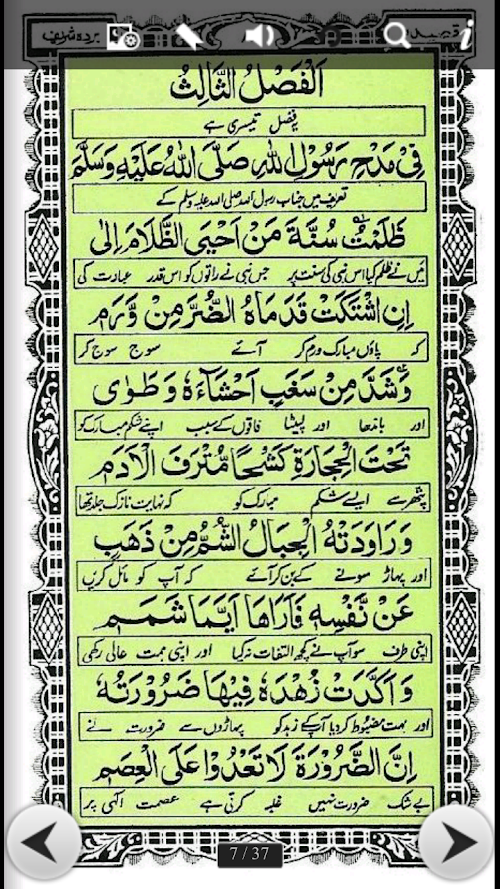 قصیدہ بردہ شریف
اَلْفَصْلُ الثَّالِثُ
یہ فصل تیسری ہے
فِیْ مَدْحِ رَسُوْلِ اللهِ صَلَّی اللهُ عَلَیْهِ وَسَلَّمَ
تعریف میں جناب رسول اللہ صلی اللہ علیہ وسلم کے
ظَلَمْتُ سُنَّةَ مَنْ اَحْیَی الظَّلَامَ اِلٰی
میں نے ظلم کیا اس نبی کی سنت پر جس نبی نے راتوں کو اس قدر عبادت کی
اِنِ اشْتَکَتْ قَدَمَاهُ الضُّرَّ مِنْ وَّرَمِ
کہ پاؤں مبارک ورم کر آئے سوج سوج کر
وَشَدَّ مِنْ سَغَبٍ اَحْشَآءَهٗ وَطَوٰی
اور باندھا اور لپیٹا فاقوں کے سبب اپنے شکم مبارک کو
تَحْتَ الْحِجَارَةِ کَشْحًا مُّتْرَفَ الْاَدَمِ
پتھر سے ایسے شکم مبارک کو کہ نہایت نازک جلد تھا
وَرَاوَدَتْهُ الْجِبَالُ الشُّمُّ مِنْ ذَهَبٍ
اور پہاڑ سونے کے بن کر آئے کہ آپ کو مائل کریں
عَنْ نَّفْسِهٖ فَاَرَاهَا اَیَّمَا شَمَمِ
اپنی طرف سو آپ نے کچھ التفات نہ کیا اور اپنی ہمت عالی رکھی
وَاَکَّدَتْ زُهْدَهٗ فِیْهَا ضَرُوْرَتُهٗ
اور بہت مضبوط کر دیا آپکے زہد کو پہاڑوں سے ضرورت نے
اِنَّ الضَّرُوْرَةَ لَا تَعْدُوْا عَلَی الْعِصَمِ
بے شک ضرورت نہیں غلبہ کرتی ہے عصمت الٰہی پر
7 / 37